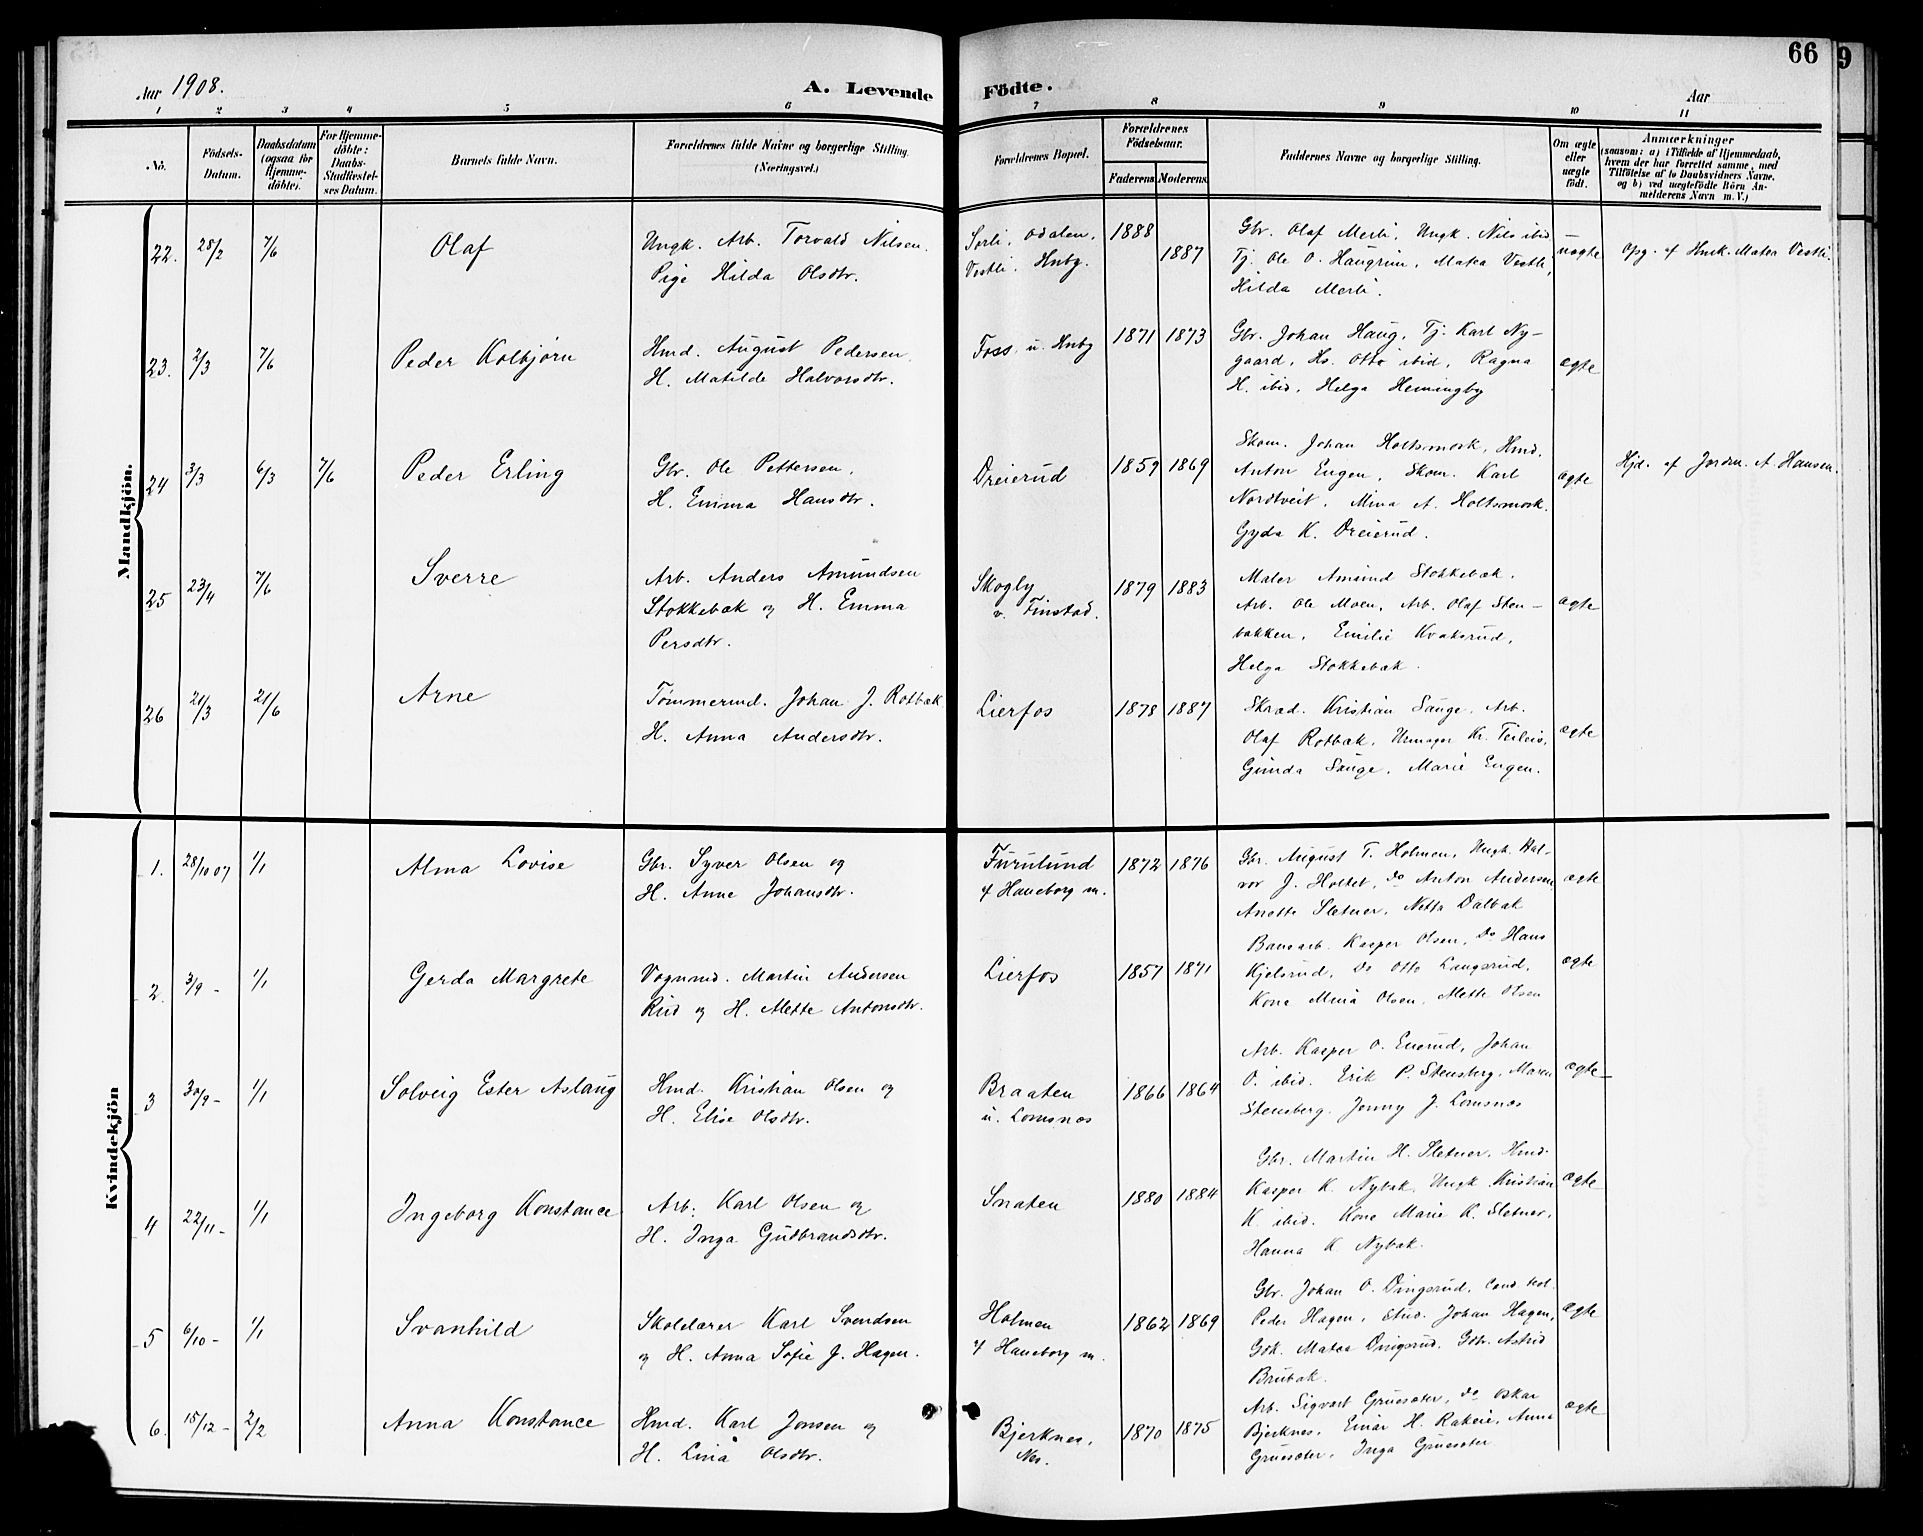 66
Aar 1908.
A. Levende Födte.
Aar
1 2 3 4 5 6 7 8 9 10 11
No.
Födsels-Datum.
Daabsdatum (ogsaa for Hjemmedöbte).
For Hjemmedöbte: Daabs-Stadfæstelses Datum.
Barnets fulde Navn.
Forældrenes fulde Navne og borgerlige Stilling. (Næringsvei.)
Forældrenes Bopæl.
Forældrenes Födselsaar.
Faderens Moderens
Faddernes Navne og borgerlige Stilling.
Om ægte eller uægte födt.
Anmærkninger
(saasom: a) i Tilfælde af Hjemmedaab,
hvem der har forrettet samme, med
Tilföielse af to Daabsvidners Navne,
og b) ved uægtefödte Börn An-
melderens Navn m. V.)
Mandkjön.
22. 28/2 7/6 Olaf
Ungk. Arb. Torvald Nilsen.
Pige Hilda Olsdtr.
Sørli, Odalen,
Vestli, Hnbg.
1888 1887
Gbr. Olaf Mærli, Ungk. Nils ibid
Tj. Ole O. Haugrim, Matea Vestli,
Hilda Mærli.
uægte
Opg. af Husk. Matea Vestli.
23. 2/3 7/6 Peder Kolbjørn
Hmd. August Pedersen,
H. Matilde Halvorsdtr.
Foss u. Hnbg
1871 1873
Gbr. Johan Haug, Tj. Karl Ny-
gaard, Hs. Otto ibid, Ragna
H. ibid, Helga Hemingby
ægte
24 3/3 6/3 7/6 Peder Erling
Gbr. Ole Pettersen,
H. Emma Hansdtr.
Dreierud
1859 1869
Skom. Johan Holtsmork, Hmd.
Anton Engen, Skom. Karl
Nordtveit, Mina A. Holtsmork.
Gyda K. Dreierud.
ægte
Hjd. af Jordm. A. Hansen.
25 23/4 7/6 Sverre
Arb. Anders Amundsen
Stokkebæk og H. Emma
Persdtr.
Skogly
v. Finstad.
1879 1883
Maler Amund Stokkebæk.
Arb. Ole Moen, Arb. Olaf Sten-
bakken, Emilie Kvakerud,
Helga Stokkebæk.
ægte
26 21/3 21/6 Arne
Tømmermd. Johan J. Rotbæk
H. Anna Andersdtr.
Lierfos
1878 1887
Skræd. Kristian Sauge, Arb.
Olaf Rotbæk, Urmager Kr. Teileis,
Gunda Sauge, Marie Engen.
ægte
Kvindekjön
1. 28/10 07 1/1 Alma Lovise
Gbr. Syver Olsen og
H. Anne Johansdtr.
Furulund
af Haneborg m.
1872 1876
Gbr. August T. Holmen, Ungk. Hal-
vor J. Holtet, do Anton Andersen
Anette Sletner, Netta Dalbæk
ægte
2. 3/9 - 1/1 Gerda Margrete
Vognmd. Martin Andersen
Rud og H. Mette Antonsdtr.
Lierfos
1857 1871
Banearb. Kasper Olsen, Do Hans
Kjelsrud, Do Otto Langsrud,
Kona Mina Olsen, Mette Olsen
ægte
3 30/9 - 1/1 Solveig Ester Aslaug
Hmd. Kristian Olsen og
H. Elise Olsdtr.
Braaten
u. Lomsnæs
1866 1864
Arb. Kasper O. Enerud, Johan
O. ibid. Erik P. Stensberg, Maren
Stensberg. Jenny J. Lomsnæs
ægte
4 22/11 - 1/1 Ingeborg Konstance
Arb. Karl Olsen og
H. Inga Gudbrandsdtr.
Snaten
1880 1884
Gbr. Martin H. Sletner, Hmd.
Kasper K. Nybak, Ungk. Kristian
K. ibid. Kone Marie K. Sletner,
Hanna K. Nybak.
ægte
5 6/10 - 1/1 Svanhild
Skolelærer Karl Svendsen
og H. Anna Sofie J. Hagen.
Holmen
af Haneborg m.
1862 1869
Gbr. Johan O. Dingsrud, Cand. teol.
Peder Hagen, Stud. Johan Hagen,
Gbk. Matea Dingsrud, Gdtr. Astrid
Brubak.
ægte
6. 15/12 - 2/2 Anna Konstance
Hmd. Karl Jonsen og
H. Lina Olsdtr.
Bjerknes,
Nes.
1870 1875
Arb. Sigvart Gruesæter, do Oskar
Bjerknes, Einar H. Rakeie, Anna
Gruesæter, Inga Gruesæter
ægte